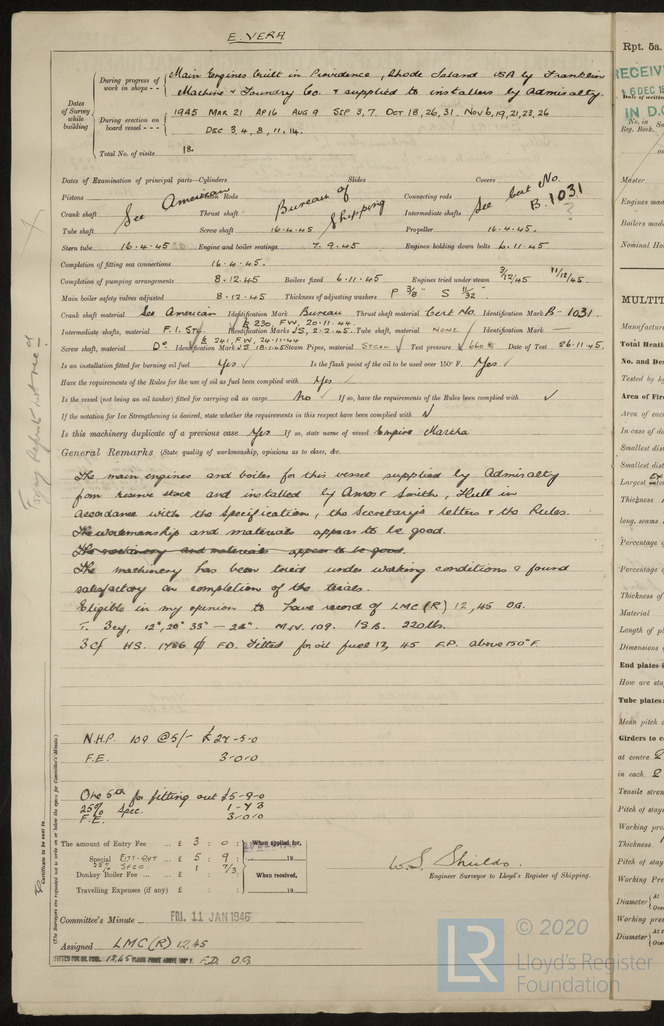 E. VERA
During progress of work in shops - - Main Engines built in Providence, Rhode Island USA by Franklin
Machine & Foundry Co. & supplied to installers by Admiralty.
Dates of Survey while building
During erection on board vessel - - - 1945 MAR 21 AP 16 AUG 9 SEP 3, 7. OCT 18, 26, 31. NOV 6, 19, 21, 23, 26
DEC 3, 4, 8, 11, 14.
Total No. of visits 18.
Dates of Examination of principal parts—Cylinders Slides Covers
Pistons Rods Connecting rods
See American Bureau of Shipping See Cert No. B. 1031 ?
Crank shaft Thrust shaft Intermediate shafts
Tube shaft Screw shaft 16.4.45 Propeller 16.4.45.
Stern tube 16.4.45 Engine and boiler seatings 7.9.45 Engines holding down bolts 6.11.45
Completion of fitting sea connections 16.4.45.
Completion of pumping arrangements 8.12.45 Boilers fixed 6.11.45 Engines tried under steam 3/12/45 11/12/45
Main boiler safety valves adjusted 8.12.45 Thickness of adjusting washers P 3/8" S 11/32"
Crank shaft material See American Identification Mark Bureau Thrust shaft material Cert No. Identification Mark B-1031.
Intermediate shafts, material F.I. Stl Identification Marks 230, FW, 20-11-44. JS, 2-2-45. Tube shaft, material NONE Identification Mark —
Screw shaft, material Do Identification Mark 241, FW, 24-11-44 JS 18.1.45 Steam Pipes, material Steel ✓ Test pressure 660 Date of Test 26.11.45.
Is an installation fitted for burning oil fuel Yes ✓ Is the flash point of the oil to be used over 150° F. Yes ✓
Have the requirements of the Rules for the use of oil as fuel been complied with Yes ✓
Is the vessel (not being an oil tanker) fitted for carrying oil as cargo No ✓ If so, have the requirements of the Rules been complied with ✓
If the notation for Ice Strengthening is desired, state whether the requirements in this respect have been complied with
Is this machinery duplicate of a previous case Yes If so, state name of vessel Empire Martha
General Remarks (State quality of workmanship, opinions as to class, &c.
The main engines and boiler for this vessel supplied by Admiralty
from reserve stock and installed by Amos & Smith, Hull in
accordance with the Specification, the Secretary's letters & the Rules.
The workmanship and materials appear to be good.
The machinery and materials appear to be good.
The machinery has been tried under working conditions & found
satisfactory on completion of the trials.
Eligible in my opinion to have record of LMC (R) 12,45 O.G.
T. 3cy, 12", 20" 33" — 24". M.N. 109. 1SB. 220 lbs.
3cf HS. 1786 ₵ FD. Fitted for oil fuel 12, 45 F.P. above 150°F.
N.H.P. 109 @ 5/- £27-5-0
F.E. 3-0-0
One 5th for fitting out £5-9-0
25% Spec. 1-7 3
F.E. 3-0-0
The amount of Entry Fee ... £ 3 : 0 : When applied for,
Special FITT-OUT ... £ 5 : 9 : 19
25% SPEC. 1 7/3
Donkey Boiler Fee ... ... £ : : When received,
Travelling Expenses (if any) £ : : 19
W.S. Shields.
Engineer Surveyor to Lloyd's Register of Shipping.
Committee's Minute FRI. 11 JAN 1946
Assigned LMC (R) 12,45
FITTED FOR OIL FUEL 12,45 FLASH POINT ABOVE 150° F. F.D. O.G.
Certificate to be sent to
(The Surveyors are requested not to write on or below the space for Committee's Minute.)
© 2020
LR Lloyd's Register
Foundation
Rpt. 5a.
RECEIV
6 DEC 19
Date of writin
IN D.O
No. in
Reg. Book.
Master
Engines mad
Boilers made
Nominal Ho
MULTIT
Manufacture
Total Heatin
No. and Des
Tested by hy
Area of Fire
Area of each
In case of do
Smallest dist
Smallest dist
Largest
Thickness
long. seams
Percentage o
Percentage o
Thickness of
Material
Length of pl
Dimensions o
End plates i
How are sta
Tube plates:
Mean pitch o
Girders to c
at centre 2
in each 2
Tensile stren
Pitch of stays
Working pre
Thickness
Pitch of stay
Working Pre
Diameter { At Over
Working press
Diameter { At Over